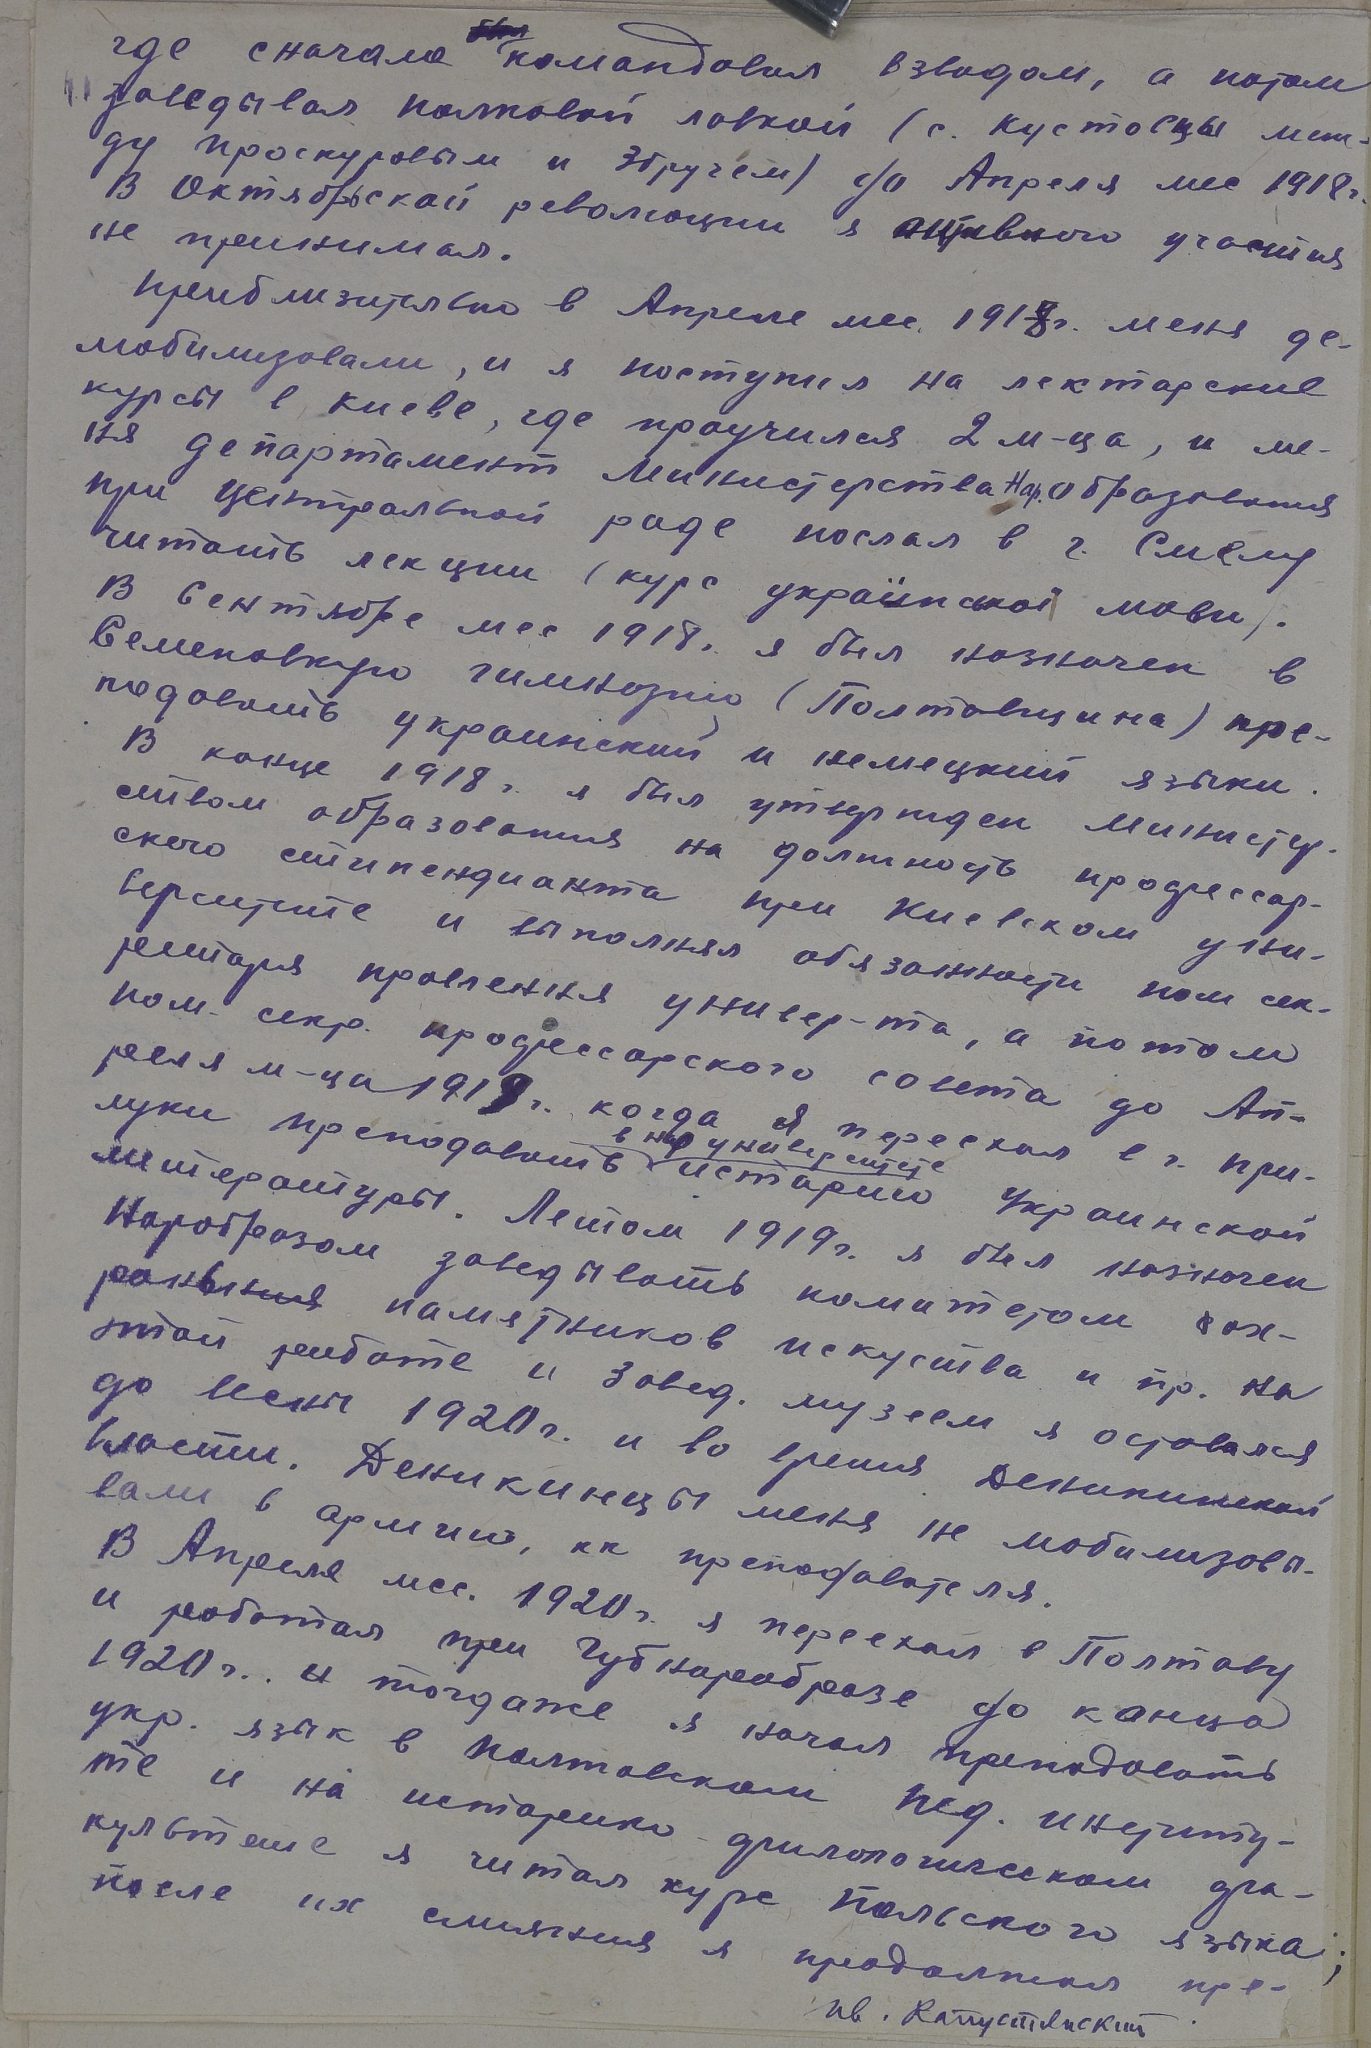 где сначала командовал взводом, а потом
заведывал полковой лавкой (с. Кустовцы меж-
ду Проскуровым и Збручем) до Апреля мес 1918 г.
В Октябрьской революции я активного участия
не принимал.
Приблизительно в Апреле мес. 1918 г. меня де-
мобилизовали, и я поступил на лекторские
курсы в Киеве, где проучился 2 м-ца, и ме-
ня департамент Министерства Нар. Образования
при Центральной раде послал в г. Смелу
читать лекции (курс української мови).
В Сентябре мес 1918 г. я был назначен в
Семеновкую гимназию (Полтавщина) пре-
подавать украинский и немецкий языки.
В конце 1918 г. я был утвержден Министер-
ством образования на должность профессор-
ского стипендианта при Киевском уни-
верситете и выполнял обязанности пом сек-
ретаря правления универ-та, а потом
пом. секр. профессорского совета до Ап-
реля м-ца 1919 г. когда я переехал в г. При-
луки преподавать в нар университете историю Украинской
литературы. Летом 1919 г. я был назначен
Наробразом заведывать комитетом ох-
ранения памятников искуства и пр. На
этой работе и завед. музеем я оставался
до весны 1920 г. и во время Деникинской
власти. Деникинцы меня не мобилизовы-
вали в армию, кк преподавателя.
В Апреле мес. 1920 г. я переехал в Полтаву
и работал при Губнаробразе до конца
1920 г. и тогдаже я начал преподавать
укр. язык в Полтавском Пед. институ-
те и на историко-филологическом фа-
культете я читал курс польского языка;
после их слияния я продолжал пре-
Ив. Капустянский